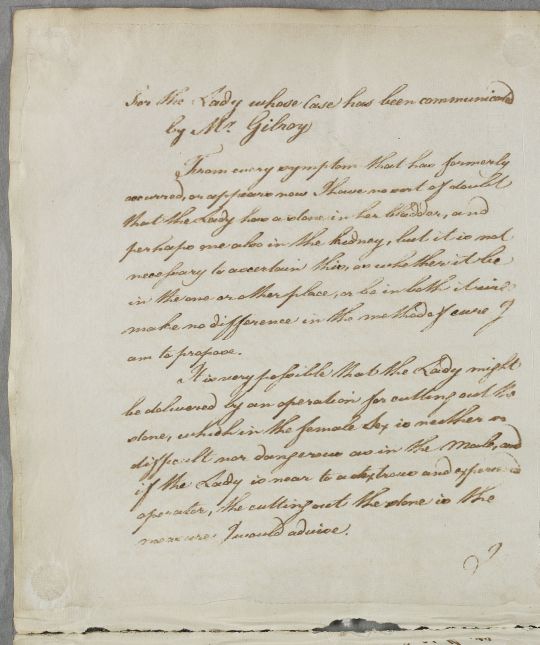 For the Lady whose Case has been communicated
by Mr. Gilroy
From every symptom that has formerly
occurred, or appears now I have no sort of doubt
that the Lady has a stone in her bladder, and
perhaps one also in the kidney, but it is not
necessary to ascertain this, as whether it be
in the one or other place, or be in both it will
make no difference in the method of cure I
am to propose.
It is very possible that the Lady might
be delivered by an operation for cutting out the
stone, which in the female Sex is neither so
difficult nor dangerous as in the Male, and
if the Lady is near to a dextrous and experienced
operator, the cutting out the stone is the
measure I would advise.
I